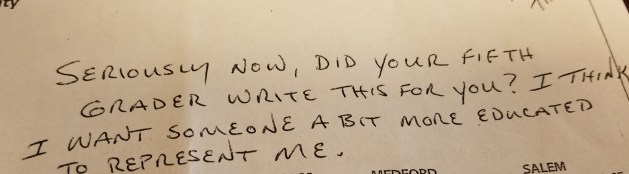 SERIOUSLY NOW, DID YOUR FIFTH
GRADER WRITE THIS FOR YOU? I THINK
I WANT SOMEONE A BIT MORE EDUCATED
TO REPRESENT ME.
MEDFORD SALEM